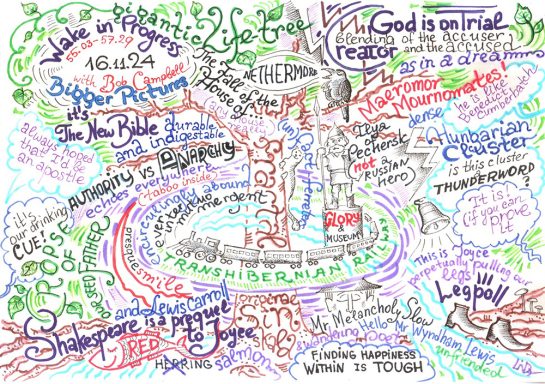 Wake in Progress
55.03-57.29
16.11.24
with Bob Campbell
Bigger Pictures
gigantic
Life-tree
The Fall of the
House of
NETHERMORE
God is on Trial
blending of the accuser
and the accused
Creator
as in a dream
Macromor
Mournomates
dense
he is like
Benedict
Cumberpatch
it's
The New Bible
durable
and indigestable
always hoped
that I'd be
an apostle
AUTHORITY vs ANARCHY
echoes everywhere
(taboo inside)
Ilya
Pechersk
not a
RUSSIAN
hero)
Hunbarian
Cluster
is this cluster
THUNDERWORD?
It is!
(if you can
prove
it
it's
our drinking
CUE!
circumcivicly abound
evergent
and mergent
GLORY
&
MUSEUM
TRANSHIBERNIAN RAILWAY
presque
smile
SEED FATHER
This is Joyce
perpetually pulling our
legs!!!
Legpoll
and Lewis Carroll
Shakespeare is a prequel
to Joyce
RED
HERRING
salmon
Mr Melancholy Slow
Hello Mr Wyndham Lewis
a wandering poet
unfriended
FINDING HAPPINESS
WITHIN IS TOUGH